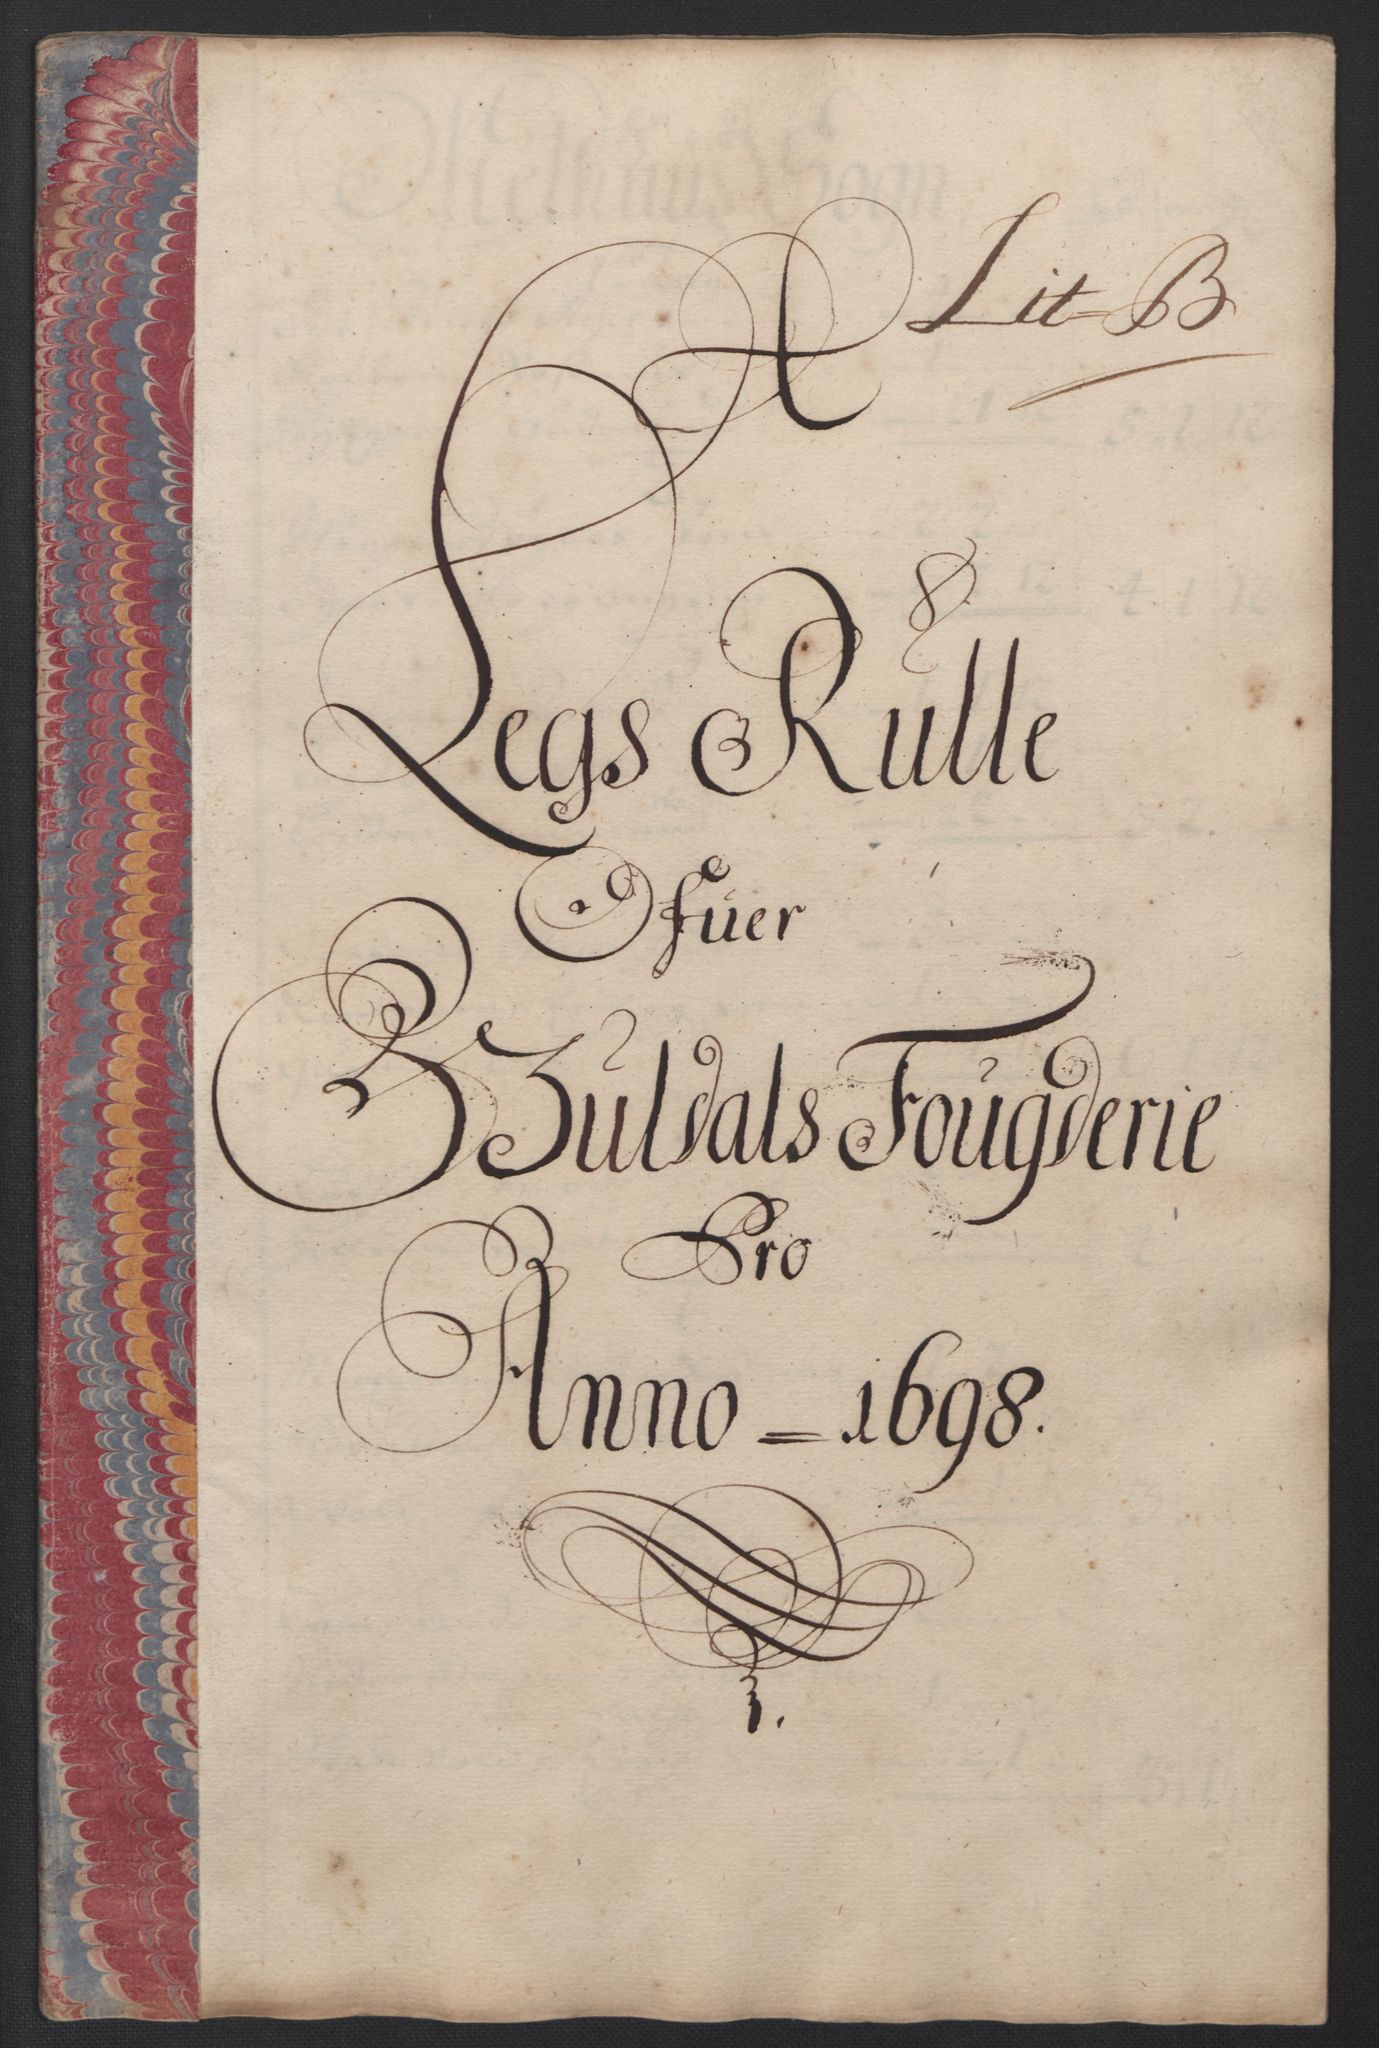 Lit B
Legs Rulle
ofuer
Guldals Fougderie
Pro
Anno = 1698.